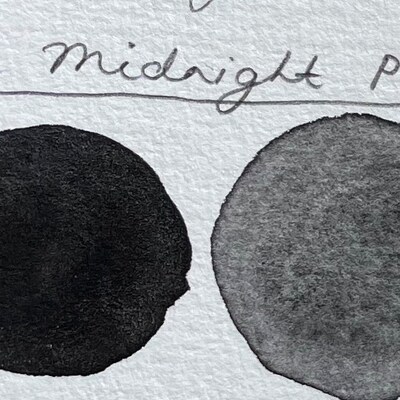 Midnight P